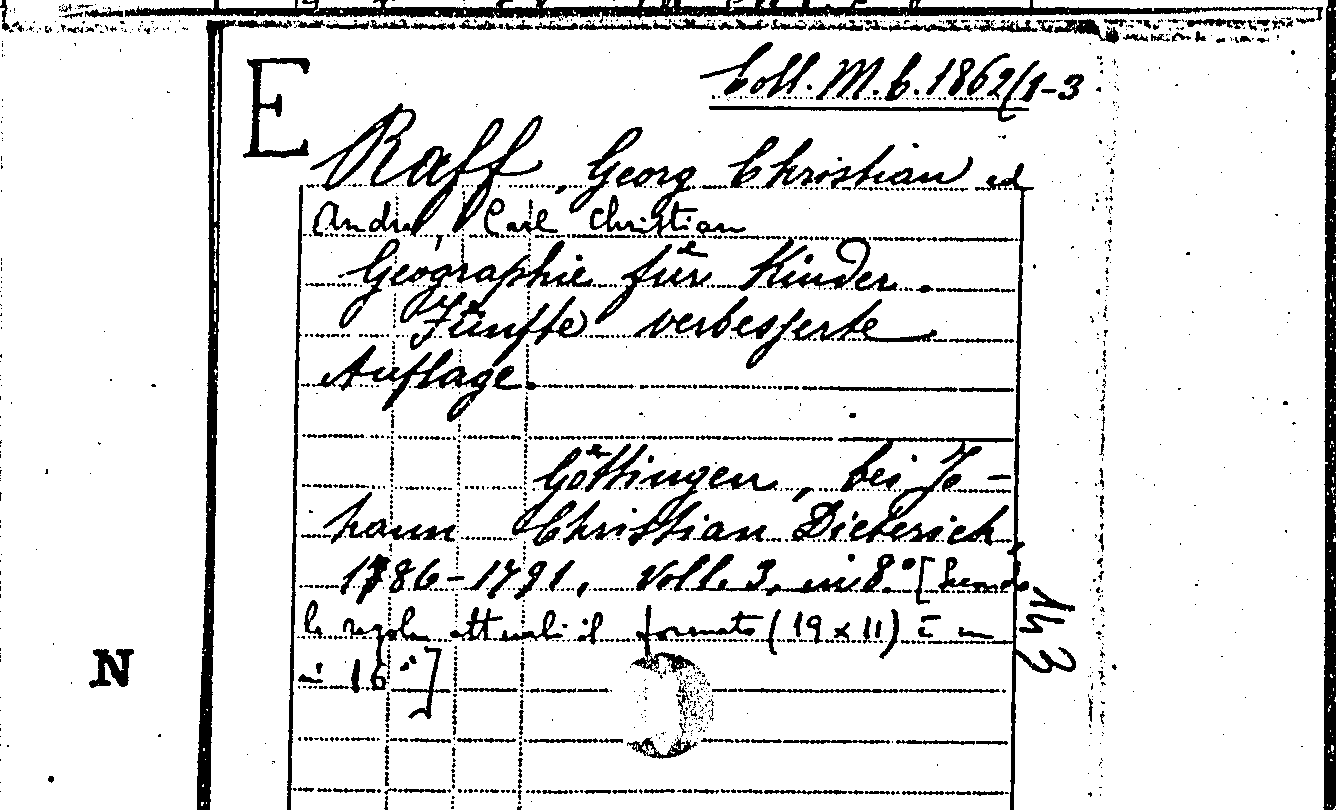 E
Coll. M. b. 1862/1-3
Raff, Georg Christian ed
André, Carl Christian
Geographie für Kinder.
Fünfte verbesserte
Auflage.
Göttingen, bei Jo-
hann Christian Dieterich,
1786-1791, Voll. 3, in 8.° [secondo
le regole attuali il formato (19 x 11) è in
16°]
143
N